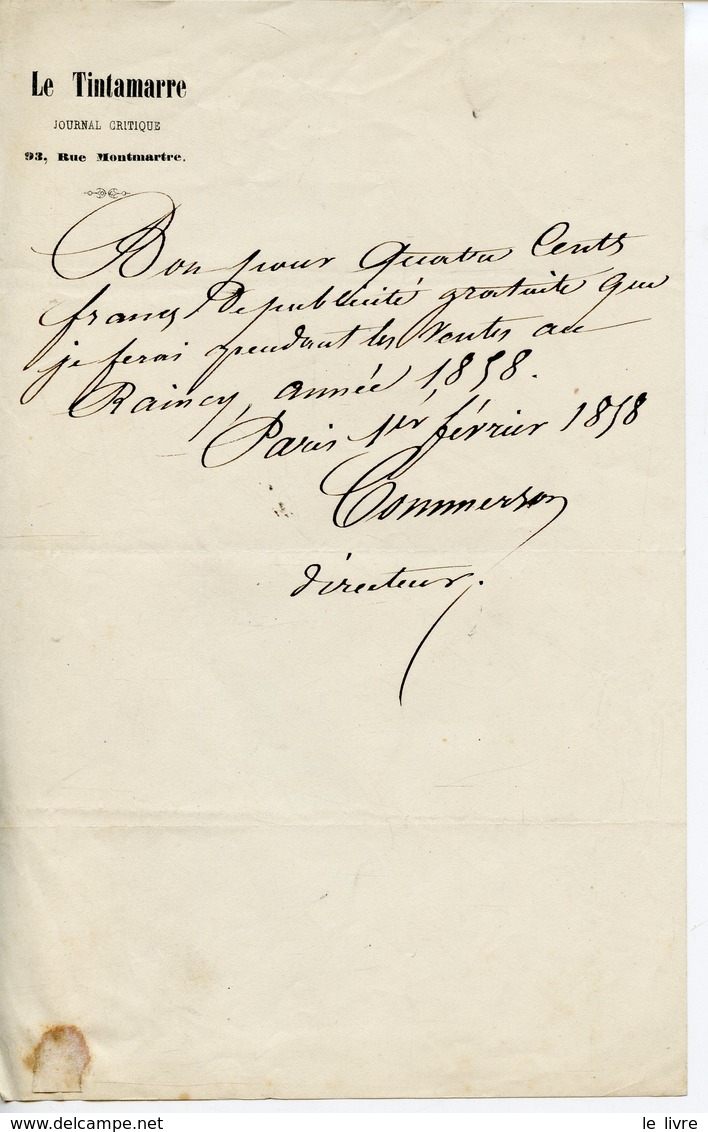 Le Tintamarre
JOURNAL CRITIQUE
93, Rue Montmartre.
Bon pour Quatre Cents
francs de publicité gratuite que
je ferai pendant les ventes au
Raincy, année 1858.
Paris 1er février 1858
Commerson
directeur.
le livre